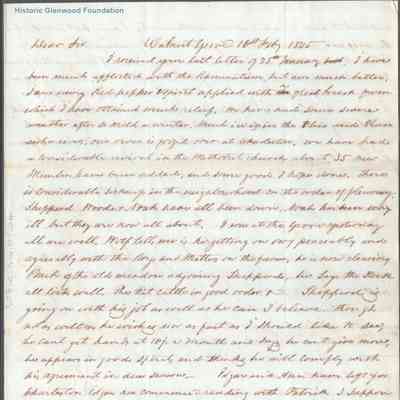 Historic Glenwood Foundation
Dear Sir Walnut Grove 18th Feby 1845
I received your last letter of 25th January, I have
been much afflicted with the Rheumatism but am much better,
I am using Red pepper & Spirit applied with
which I have obtained much relief. We have had some severe
weather after so mild a winter. Much
our river is good now at Charleston, we have had
a Considerable revival in the Methodist Church, about 35 new
Members have been added, and some good I hope done. There
is Considerable Sickness in the neighborhood in the order of pleurisy.
Sheppard Woodie, Noah have all been down. Noah has been very
ill but they are now all about. I was at the Grove yesterday
all are well. is getting on very peaceably and
agreeably with the Boys and Matters on the farm, he is now cleaning
Part of the old meadow adjoining Shepperds, he Says the Stock
all look well. The fat Cattle in good order &c Shepperd is
going on with his job as well as he can I believe though
not as well as he wishes nor as fast as I Should like to see
he cant get hands at 10$ a Month and Says he cant give more,
he appears in good Spirits and thinks he will comply with
his agreement in due season. Edgar and Ann have left for
Charleston Edgar has commenced reading with Patrick I suppose